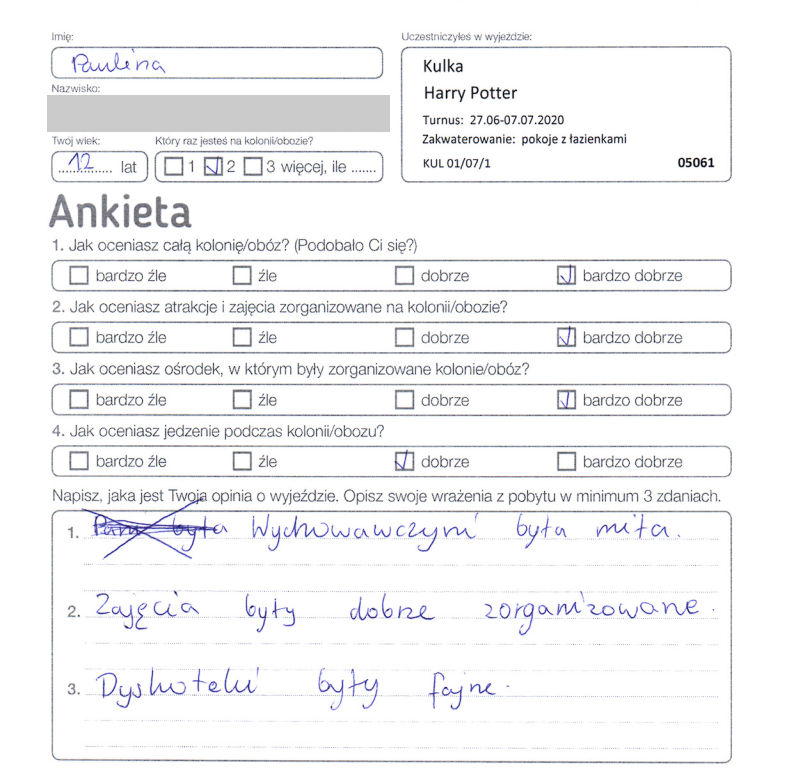 Imię:
Paulina
Nazwisko:
Twój wiek:
12 lat
Który raz jesteś na kolonii/obozie?
1 2 3 więcej, ile .......
Uczestniczyłeś w wyjeździe:
Kulka
Harry Potter
Turnus: 27.06-07.07.2020
Zakwaterowanie: pokoje z łazienkami
KUL 01/07/1 05061
Ankieta
1. Jak oceniasz całą kolonię/obóz? (Podobało Ci się?)
bardzo źle źle dobrze bardzo dobrze
2. Jak oceniasz atrakcje i zajęcia zorganizowane na kolonii/obozie?
bardzo źle źle dobrze bardzo dobrze
3. Jak oceniasz ośrodek, w którym były zorganizowane kolonie/obóz?
bardzo źle źle dobrze bardzo dobrze
4. Jak oceniasz jedzenie podczas kolonii/obozu?
bardzo źle źle dobrze bardzo dobrze
Napisz, jaka jest Twoja opinia o wyjeździe. Opisz swoje wrażenia z pobytu w minimum 3 zdaniach.
1. Pani była Wychowawczyni była miła.
2. Zajęcia były dobrze zorganizowane.
3. Dyskoteki były fajne.